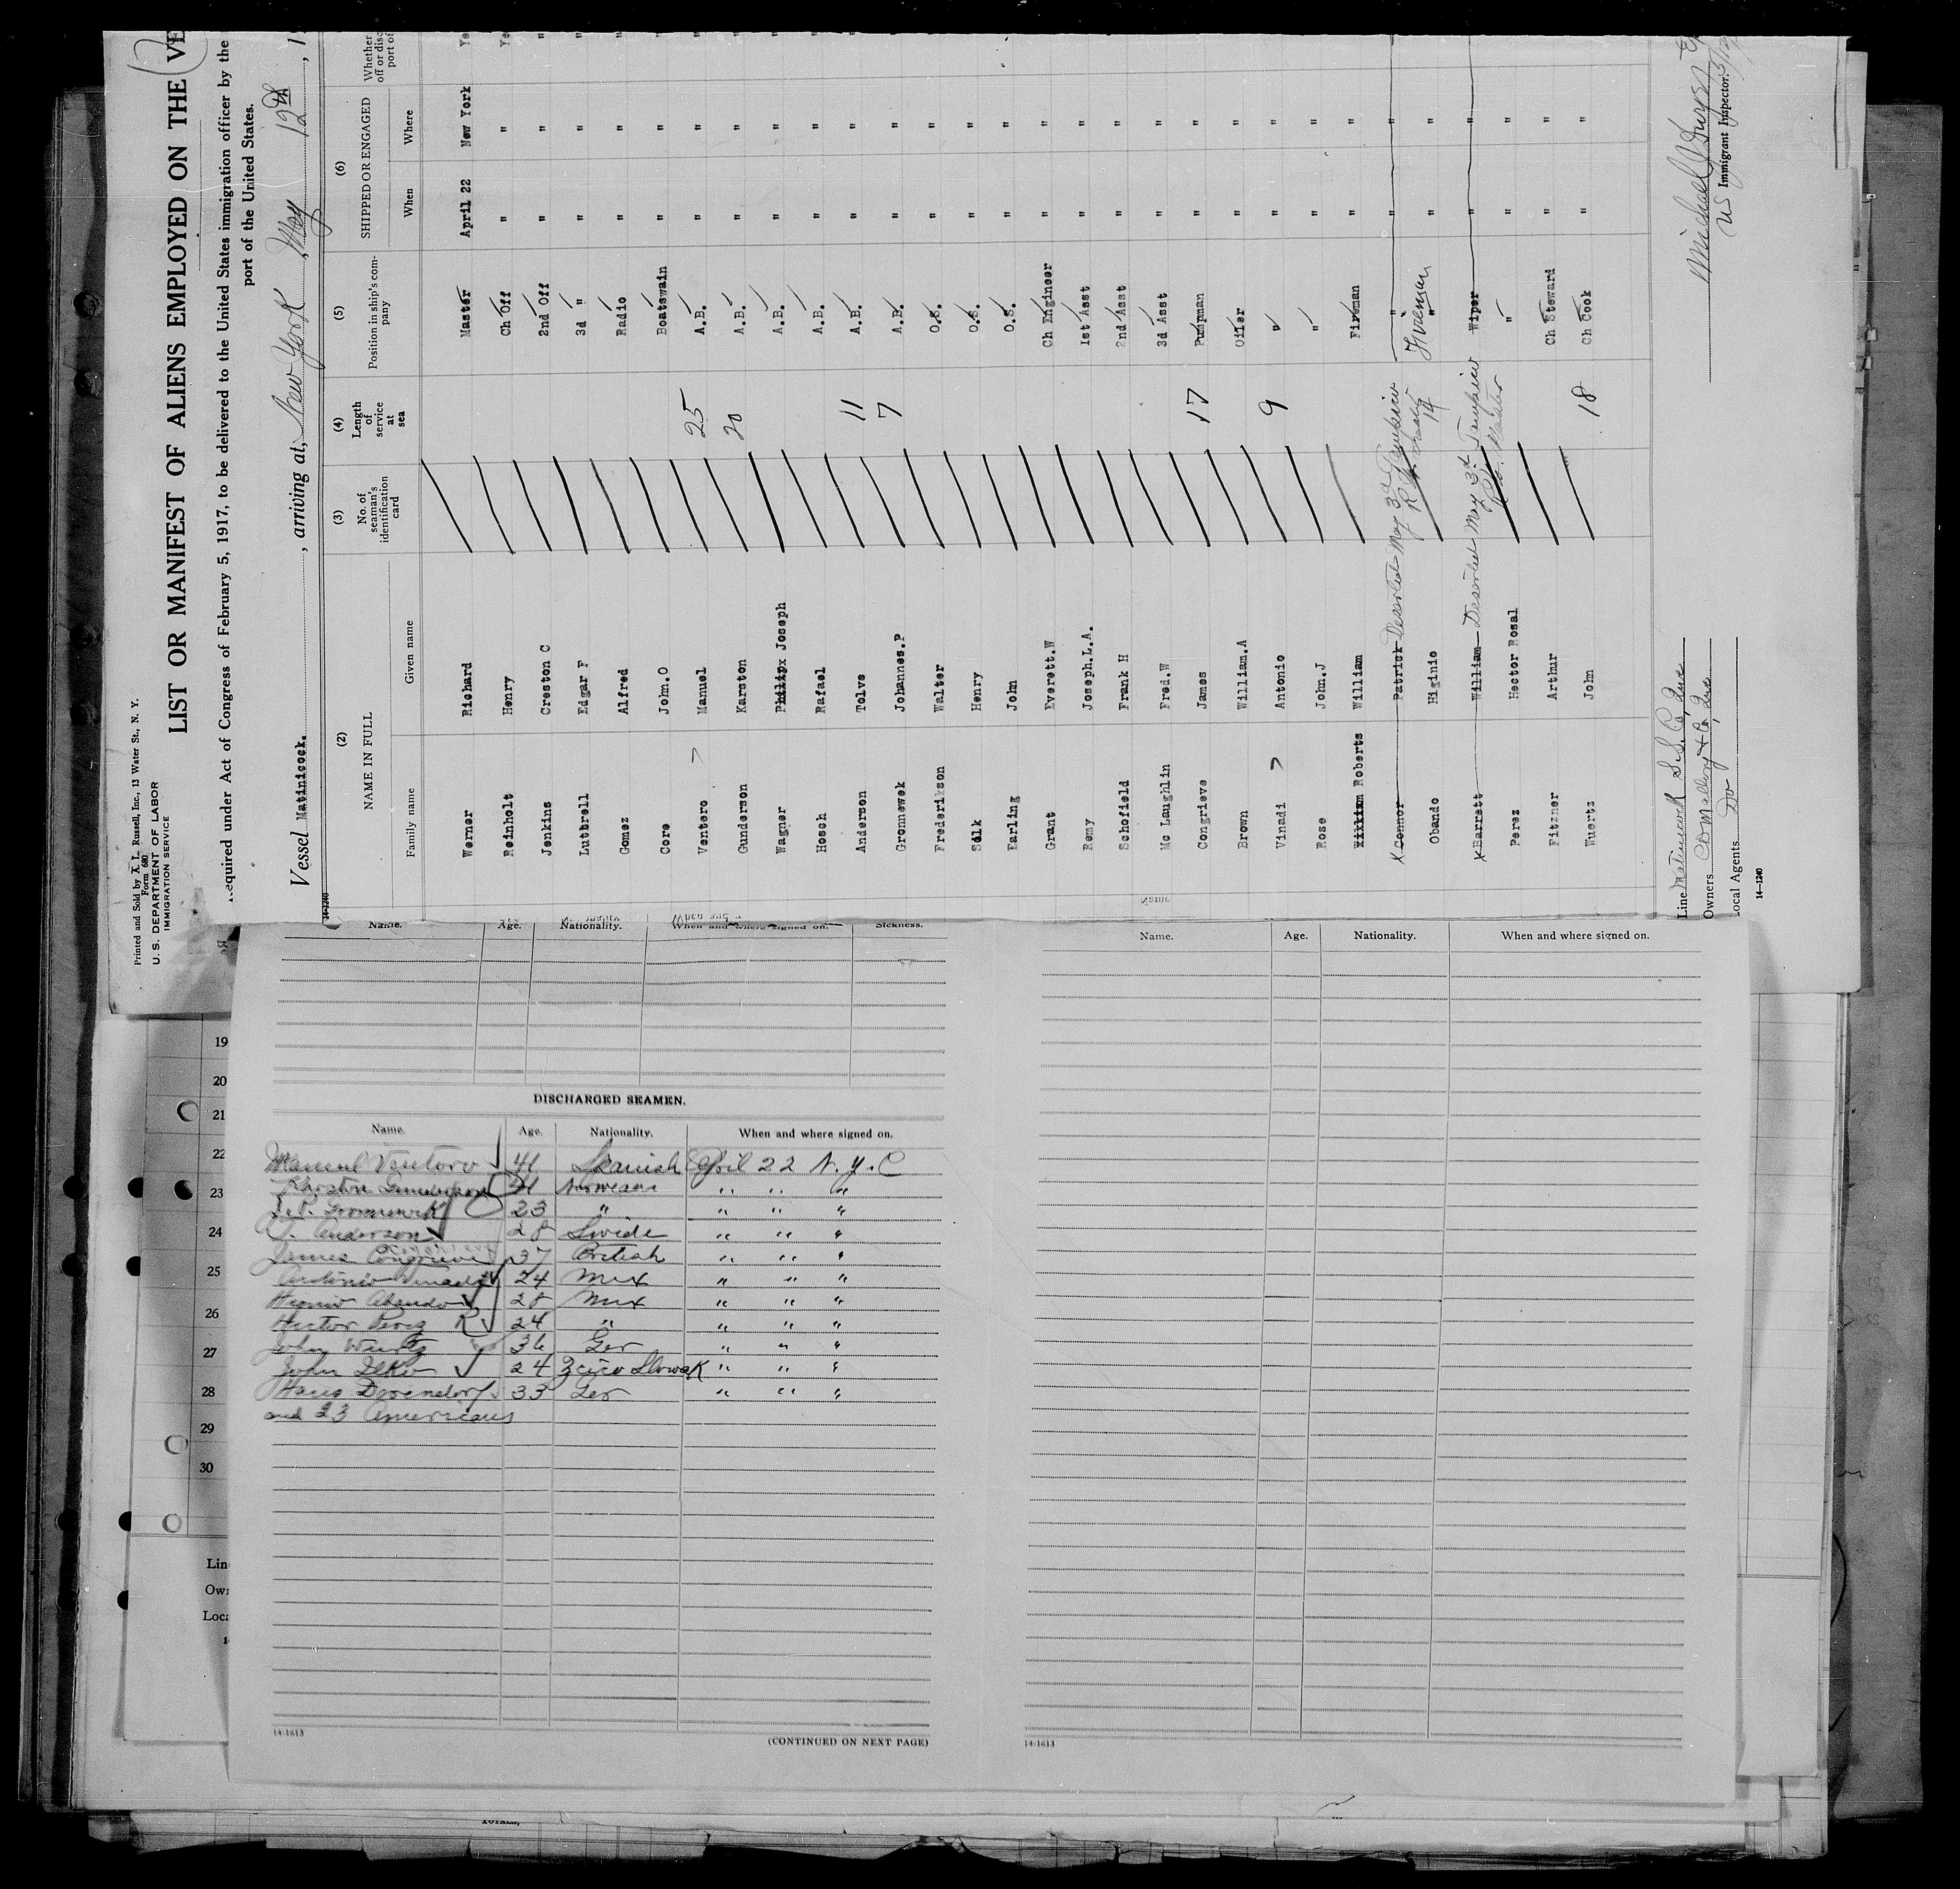 Printed and Sold by A. L. Russell, Inc., 13 Water St., N. Y.
Form 680
U. S. DEPARTMENT OF LABOR
IMMIGRATION SERVICE
LIST OR MANIFEST OF ALIENS EMPLOYED ON THE VE
equired under Act of Congress of February 5, 1917, to be delivered to the United States immigration officer by the
port of the United States.
Vessel Matinicock. , arriving at, New York , May 12th , 1
14-1240
(2) (3) (4) (5) (6)
NAME IN FULL No. of seaman's identification card Length of service at sea Position in ship's company SHIPPED OR ENGAGED Whether
Family name Given name When Where
Werner Richard Master April 22 New York
Reinholt Henry Ch Off " "
Jenkins Creston C 2nd Off " " "
Luttrell Edgar F 3d " " " "
Gomez Alfred Radio " " "
Core John.O Boatswain " " "
Ventero Manuel 25 A.B. " " "
Gunderson Karston 20 A.B. " " "
Wagner Joseph A.B. " " "
Hosch Rafael A.B. " " "
Anderson Tolve 11 A.B. " " "
Gronnewek Johannes.P 7 A.B. " " "
Frederikson Walter O.S. " " "
Silk Henry O.S. " " "
Earling John O.S. " " "
Grant Everett.W Ch Engineer " " "
Remy Joseph.L.A. 1st Asst " " "
Schofield Frank H 2nd Asst " " "
Mc Laughlin Fred.W 3d Asst " " "
Congrieve James 17 Pumpman " " "
Brown William.A Oiler " " "
Vinadi Antonio 9 " " " "
Rose John.J " " " "
Roberts William Fireman " " "
x Connor Patrick Deserted May 3d Tampico " " "
Obando Higinio 14 " Fireman " "
x Barrett William Deserted May 3d Tampico Wiper " "
Perez Hector Rosal " " "
Fitzner Arthur Ch Steward " "
Wuertz John 18 Ch Cook " "
Line Matinicock S.S. Co, Inc
Owners C D Mallory & Co, Inc
Local Agents Do
14-1240
Michael
US Immigrant Inspector.
Name. Age. Nationality. When and where signed on. Sickness.
Name. Age. Nationality. When and where signed on.
19
20
21
22
23
24
25
26
27
28
29
30
Lin
Ow
Loca
DISCHARGED SEAMEN.
Name. Age. Nationality. When and where signed on.
Manuel Ventoro 41 Spanish April 22 N.Y.C
Karston Gunderson 41 " " "
J.P. Gronnewek 23 " " " "
A.T. Anderson 28 Swide " " "
James Congrieve 37 British " " "
Antonio Vinadi 24 Mex " " "
Higinio Abando 28 Mex " " "
Hector Perez R 24 " " " "
John Wuertz 36 Ger " " "
John Ilko 24 Zcico Slowak " " "
Hans Dorendorf 33 Ger " " "
and 23 Americans
14-1613
(CONTINUED ON NEXT PAGE)
14-1613
TOTALS,